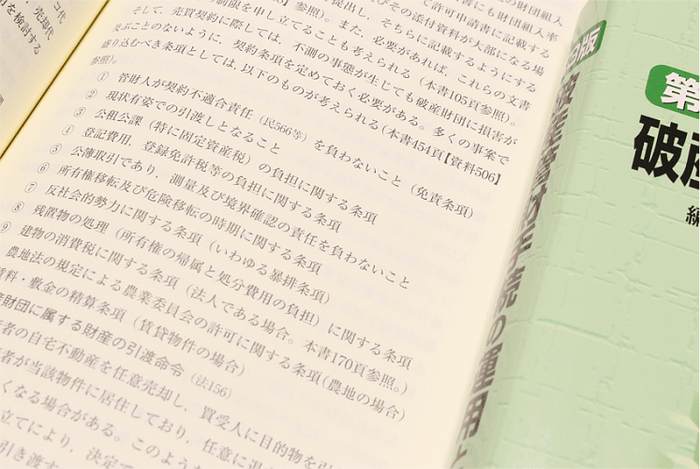 コ代
売却代
を検討する
許可申請書にも財団組入率
提出し、そちらに記載するようにする
び、その添付資料が大部になる場
の制限を申し立てることも考えられる（本書105頁参照）。
参照）。また、必要があれば、これらの文書
そして、売買契約に際しては、不測の事態が生じても破産財団に損害が
及ぶことのないように、契約条項を定めておく必要がある。多くの事案で
盛り込むべき条項としては、以下のものが考えられる（本書454頁【資料506】
参照）。
① 管財人が契約不適合責任（民566等）を負わないこと（免責条項）
② 現状有姿での引渡しとなること
③ 公租公課（特に固定資産税）の負担に関する条項
④ 登記費用、登録免許税等の負担に関する条項
⑤ 公簿取引であり、測量及び境界確認の責任を負わないこと
⑥ 所有権移転及び危険移転の時期に関する条項
⑦ 反社会的勢力に関する条項（いわゆる暴排条項）
⑧ 残置物の処理（所有権の帰属と処分費用の負担）に関する条項
⑨ 建物の消費税に関する条項（法人である場合。本書170頁参照。）
農地法の規定による農業委員会の許可に関する条項（農地の場合）
賃料・敷金の精算条項（賃貸物件の場合）
財団に属する財産の引渡命令（法156）
者の自宅不動産を任意売却し、買受人に目的物を引
者が当該物件に居住しており、任意に退
くなる場合がある。このような
立てにより、決定で
引き渡す
版
の運用
第
破産
編